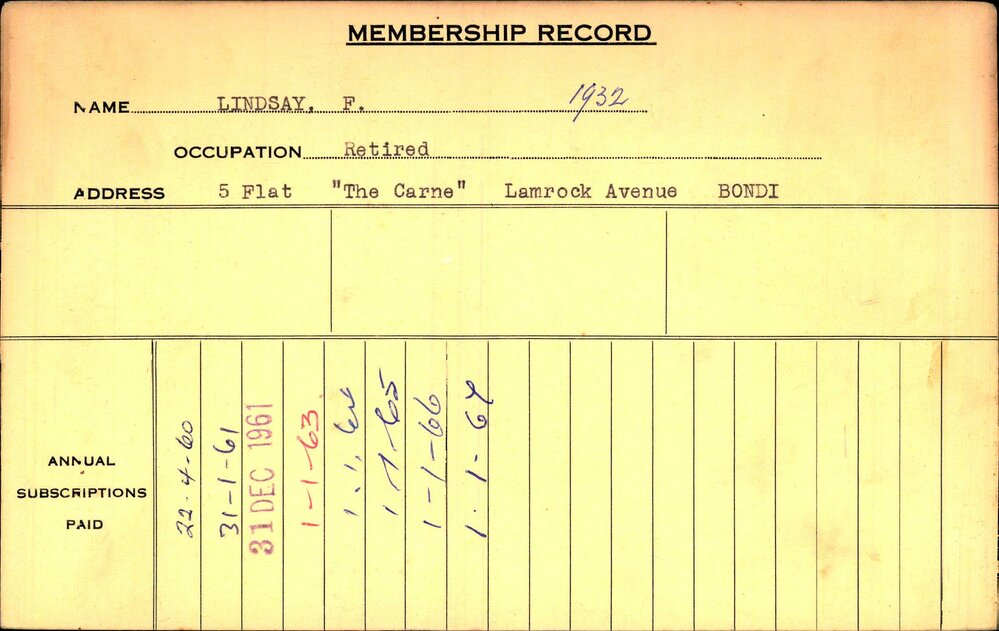 MEMBERSHIP RECORD
NAME LINDSAY, F. 1932
OCCUPATION Retired
ADDRESS 5 Flat "The Carne" Lamrock Avenue BONDI
ANNUAL
SUBSCRIPTIONS
PAID
22-4-60
31-1-61
31 DEC 1961
1-1-63
1.1.64
1-1-65
1-1-66
1.1.67